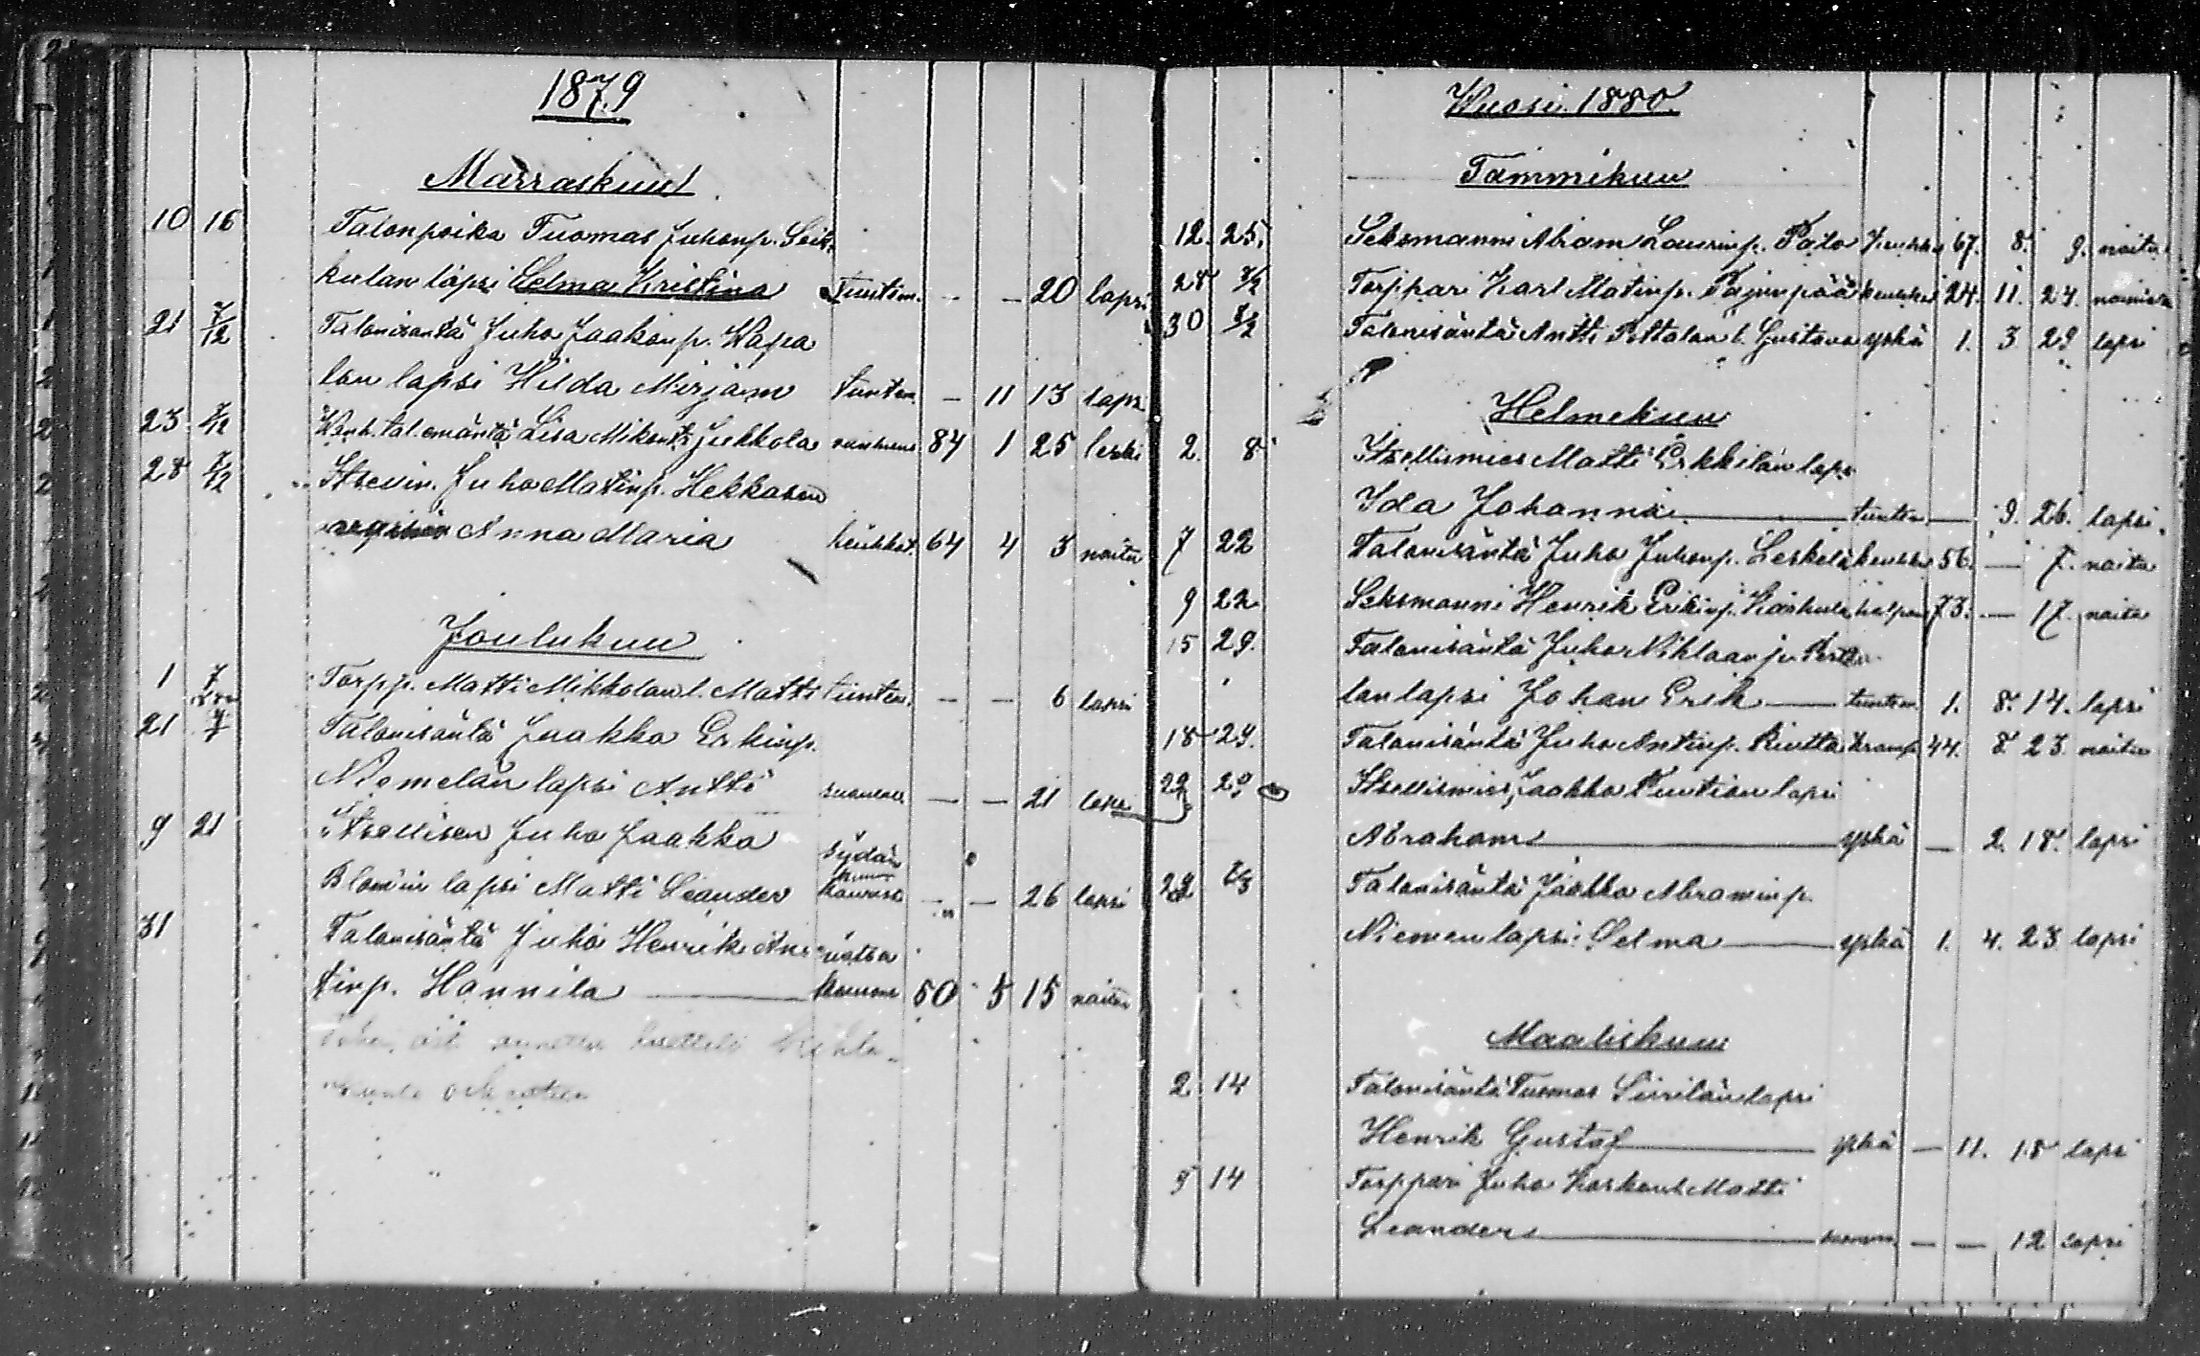 1879
Marraskuu
10 16 Talonpoika Tuomas Juhonp. Seik-
kulan lapsi Selma Kristina Tuntem. - - 20 lapsi
21 7/12 Talonisäntä Juho Jaakonp. Wapa
lan lapsi Hilda Mirjam tuntem. - 11 13 laps
23 7/12 Wanh. tal. emäntä Lisa Mikont. Jukkola vanhuus 84 1 25 leski
28 7/12 Itsellin. Juho Matinp. Hekkasen
Anna Maria keuhkot. 64 4 3 naitu
Joulukuu
1 7 Torpp. Matti Mikkolan l. Matti tunten. - - 6 lapsi
21 Talonisäntä Jaakko Erkinp.
Niemelän lapsi Antti - - 21 laps
9 21 Itsellisen Juho Jaakko sydän
Blom'in lapsi Matti Leander - - 26 lapsi
31 Talonisäntä Juho Henrik An- vatsa
tinp. Hannila 50 5 15 naitu
Wuosi 1880.
Tammikuu
12. 25. Seksmanni Abram Laurinp. Palo Keuhko 67. 8. 9. naitu
28 8/2 Torppari Karl Matinp. Pajunpää keuhko 24. 11. 24. naimatn
30 8/2 Talonisäntä Antti Pottalan l. Gustava yskä 1. 3 29 lapsi
Helmekuu
2. 8 Itsellismies Matti Erkkilän laps
Ida Johanna tunten - 9. 26. lapsi.
7 22 Talonisäntä Juho Juhonp. Leskelä keuhko 56. - 7. naitu
9 22 Seksmanni Henrik Erikinp. halpaus 73. - 17. naitu
15 29. Talonisäntä Juho Niklaanp.
lan lapsi Johan Erik tuntem 1. 8. 14. lapsi
18 29. Talonisäntä Juho Antinp. Kramp. 44. 8 23. naitu
22 29 Itsellismies Jaakko lapsi
Abraham yskä - 2. 18. lapsi
22 Talonisäntä Jaakko Abraminp.
Niemen lapsi Selma yskä 1. 4. 23 lapsi
Maaliskuu
2. 14 Talonisäntä Tuomas Siirilän lapsi
Henrik Gustaf yskä - 11. 18 lapsi
14 Torppari Juho Matti
Leander - - 12 lapsi